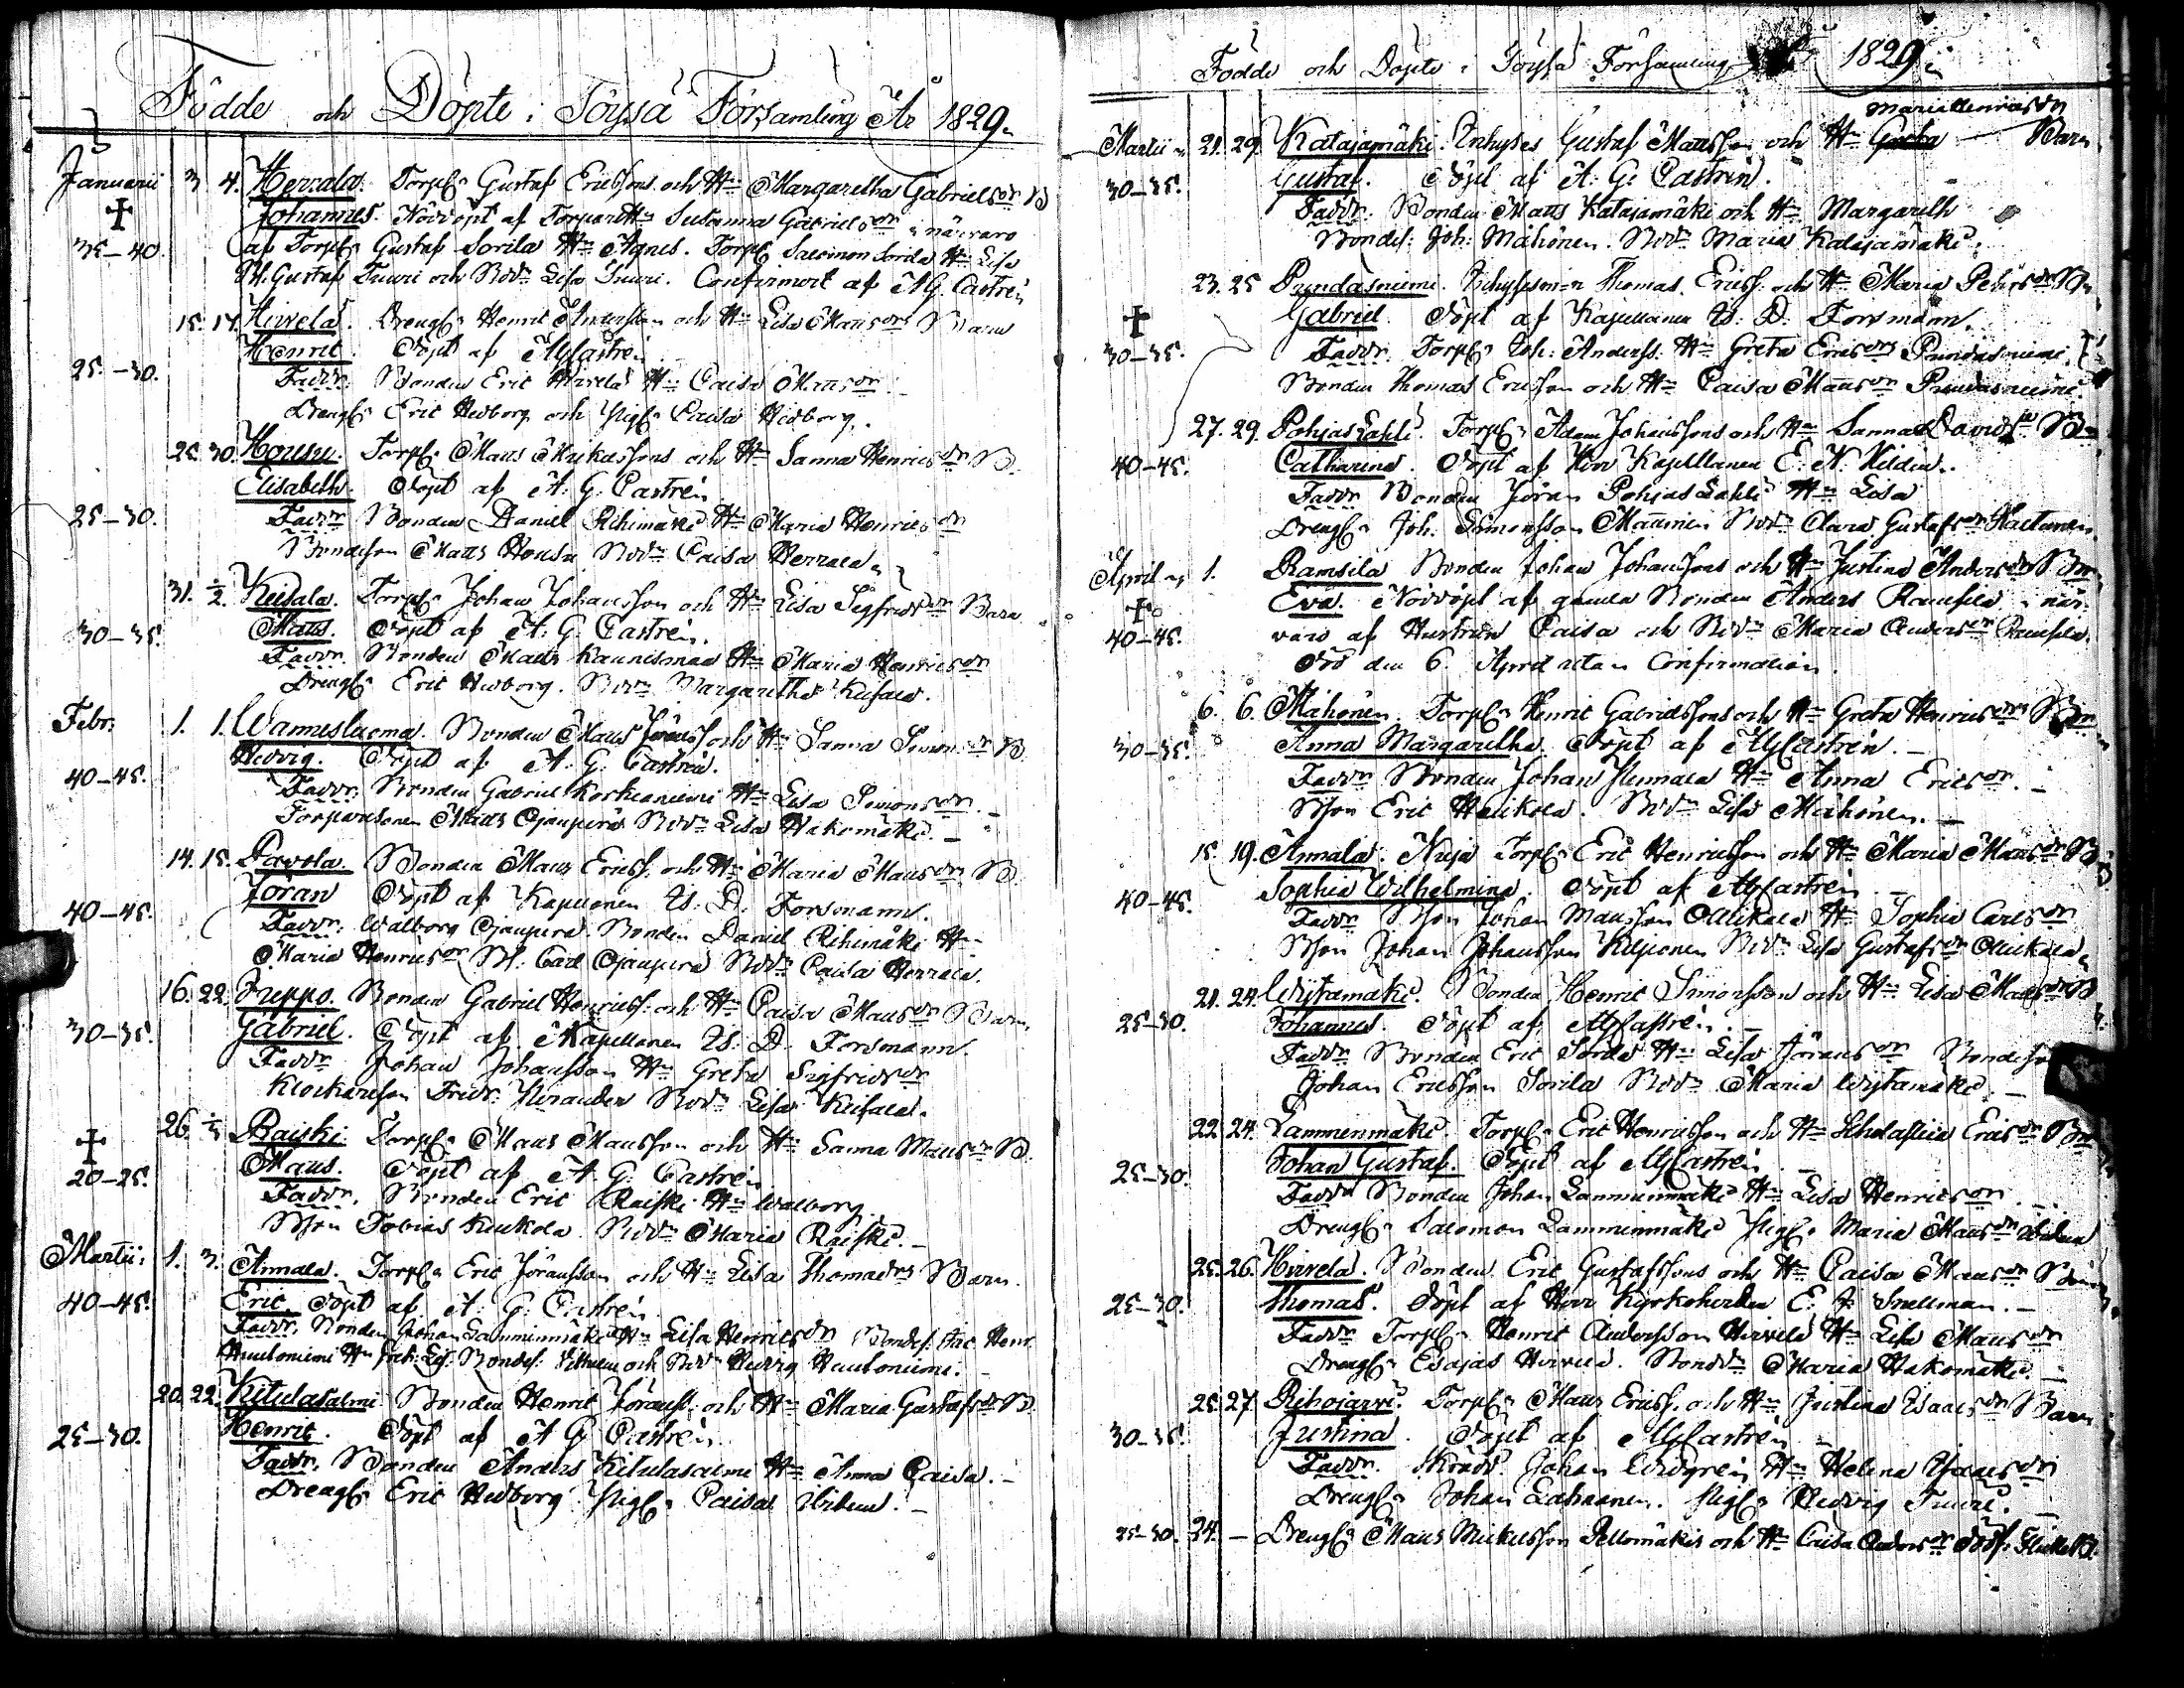 Födde och Döpte i Töysä Församling År 1829.
Januarii 3 4. Herrala. Torp. Gustaf Ericssons och H. Margaretha Gabrielsdr B
Johannes. Nöddöpt af Torpare H. Susanna Gabrielsdr i närvaro
35-40. af Torp. Gustaf Sorila H. Agnes. Torp. Salomon Sorila H. Lisa
Gustaf Tuuri och Bdr Lisa Tuuri. Confirmert af A G Castrén
15. 17. Hirvelä. Drengen Henric Andersson och H. Lisa Matsdr Barn
Henric. Döpt af A G Castrén
25-30. Faddr. Bonden Eric Hirvelä H. Caisa Matsdr
Drengen Eric Hedborg och Pig. Caisa Hedborg.
25 30. Housu. Torp. Matts Michelssons och H. Sanna Henricsdr B.
Elisabeth. Döpt af A. G. Castrén
25-30. Faddr Bonden Daniel Riihimäki H. Maria Henricsdr
Bondeson Matts Housu Bdr Caisa Herrala
31. 1/2. Keisala. Torp. Johan Johansson och H. Lisa Sigfridsdr Barn
Matts. Döpt af A. G. Castrén.
30-35. Faddr. Bonden Matts Kaunismaa H. Maria Henricsdr
Dreng. Eric Hedborg. Bdr Margaretha Keisala.
Febr. 1. 1. Wannesluoma. Bonden Matts Jöranss och H. Sanna Simonsdr B.
Hedvig. Döpt af A. G. Castrén.
40-45. Faddr. Bonden Gabriel Korkianiemi H. Lisa Simonsdr.
Torparesonen Matts Ojanperä Bdr Lisa Hakomäki.
14. 15. Pavola. Bonden Matts Ericss. och H. Maria Matsdr B.
Jöran Döpt af Kapellanen Is. D. Forsmann.
40-45. Faddr. Walborg Ojanperä. Bonden Daniel Riihimäki H.
Maria Henricsdr Carl Ojanperä Bdr Caisa Herrala.
16. 22. Seppo. Bonden Gabriel Henricss. och H. Caisa Matsdr Barn
Gabriel. Döpt af Kapellanen Is. D. Forsmann.
30-35. Faddr Johan Johansson H. Greta Sigfridsdr
Klockareson Fredr. Bdr Lisa Keisala.
26. 1/3 Raiski Torp. Matts Matsson och H. Sanna Matsdr B.
Matts. Döpt af A. G. Castrén
20-25. Faddr. Bonden Eric Raiski H. Walborg.
Bson Tobias Keukola. Bdr Maria Raiski.
Martii. 1. 3. Annala. Torp. Eric Jöransson och H. Lisa Thomasdr Barn
40-45. Eric. Döpt af A. G. Castrén
Faddr. Bonden Johan Lamminmäki H. Lisa Henricsdr Bondes. Henr.
Hautoniemi H. Bondes. Vilhelm och Bdr Hedvig Hautoniemi.
20. 22. Kitulasalmi Bonden Henric Jöranss. och H. Maria Gustafsdr B.
Henric. Döpt af A G Castrén
25-30. Faddr. Bonden Anders Kitulasalmi H. Anna Caisa.
Dreng. Eric Hedborg Pig. Caisa Ibidem.
Födde och Döpte i Töysä Församling År 1829.
Maria Henricsdr
Martii 21. 29. Katajamäki. Inhyses Gustaf Mattsson och H. Greta Barn
30-35. Gustaf. Döpt af A. G. Castrén.
Faddr. Bonden Matts Katajamäki och H. Margareth
Bondes. Joh. Mähönen. Bdr Maria Katajamäki.
23. 25 Pundasniemi. Inhysesman Thomas Ericss. och H. Maria Pehrsdr B
Gabriel. Döpt af Kapellanen Is. D. Forsmann.
30-35. Faddr. Torp. Joh. Anderss. H. Greta Ericsdr Pundasniemi
Bonden Thomas Ericsson och H. Caisa Matsdr Pundasniemi
27. 29. Pohjaslahti. Torp. Adam Johanssons och H. Sanna Davidsdr B
40-45. Catharina. Döpt af Herr Kapellanen E. N. Hildén.
Faddr Bonden Jöran Pohjaslahti H. Lisa
Dreng. Joh. Simonsson Manninen Bdr Clara Gustafsdr
April 1. Ramsila Bonden Johan Johanssons och H. Justina Andersdr B
Eva. Nöddöpt af gamla Bonden Anders Ramsila i när-
40-45. varo af Hustrun Caisa och Bdr Maria Andersdr Ramsila.
Död den 6. April utan Confirmation.
6. 6. Mähönen. Torp. Henric Gabrielssons och H. Greta Henricsdr B
30-35. Anna Margaretha. Döpt af A G Castrén.
Faddr Bonden Johan Hunnala H. Anna Ericsdr.
Bson Eric Heikola. Bdr Lisa Mähönen.
15. 19. Annala. Torp. Eric Henricsson och H. Maria Matsdr B
40-45. Sophia Wilhelmina. Döpt af A G Castrén
Faddr Bson Johan Mattsson Ollikala H. Sophia Carlsdr
Bson Johan Johansson Kilpionen Bdr Lisa Gustafsdr Ollikala
21. 24. Wiitamäki. Bonden Henric Simonsson och H. Lisa Matsdr B
25-30. Johannes. Döpt af A G Castrén.
Faddr Bonden Eric Sorila H. Lisa Jöransdr Bondeson
Johan Ericsson Sorila Bdr Maria Wiitamäki.
22 24. Lamminmäki. Torp. Eric Henricsson och H. Scholastica Ericsdr B
25-30. Johan Gustaf. Döpt af A G Castrén
Faddr Bonden Johan Lamminmäki H. Lisa Henricsdr
Dreng. Salomon Lamminmäki Pig. Maria Matsdr Ibidem
25. 26. Hirvelä. Bonden Eric Gustafssons och H. Caisa Matsdr
25-30. Thomas. Döpt af Herr Kyrkoherden E. J. Snellman.
Faddr Torp. Henric Andersson Hirvelä H. Lisa Matsdr
Dreng. Esajas Hirvelä. Bondr Maria Hakomäki.
25. 27. Rihojärvi. Torp. Matts Ericss. och H. Justina Isaacsdr Barn
30-35. Justina. Döpt af A G Castrén
Faddr. Skrädd. Johan H. Helena Isaacsdr
Dreng. Johan Pig. Hedvig Tuuri.
25-30. 24. — Dreng. Matts Michelsson Pellomäki och H. Caisa Andersdr